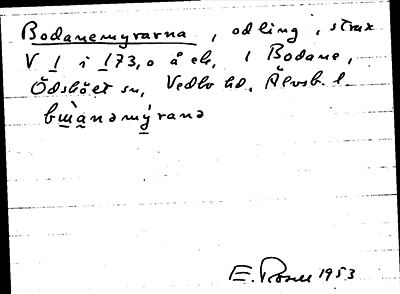 Bodanemyrarna, odling, strax
V 1 i 173,0 å ek, i Bodane,
Ödsköet sn, Vedbo hd. Älvsb. l.
bɯ̀ànəmýranə
E. Rosell 1953